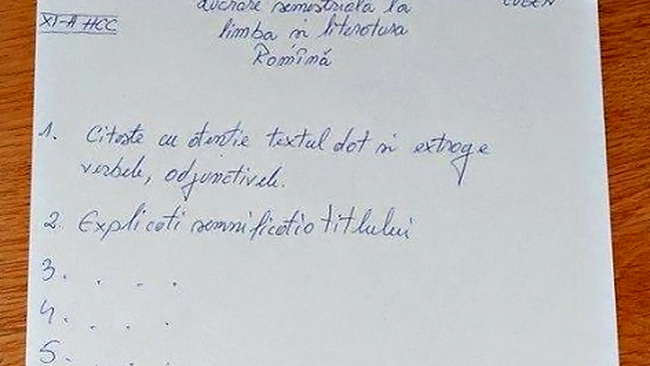 Lucrare semestriala la
XI-A HCC
limba si literatura
Română
1. Citeste cu atentie textul dat si extrage
verbele, adjunctivele.
2. Explicati semnificatia titlului
3. . . . .
4. . . .
5. . . .